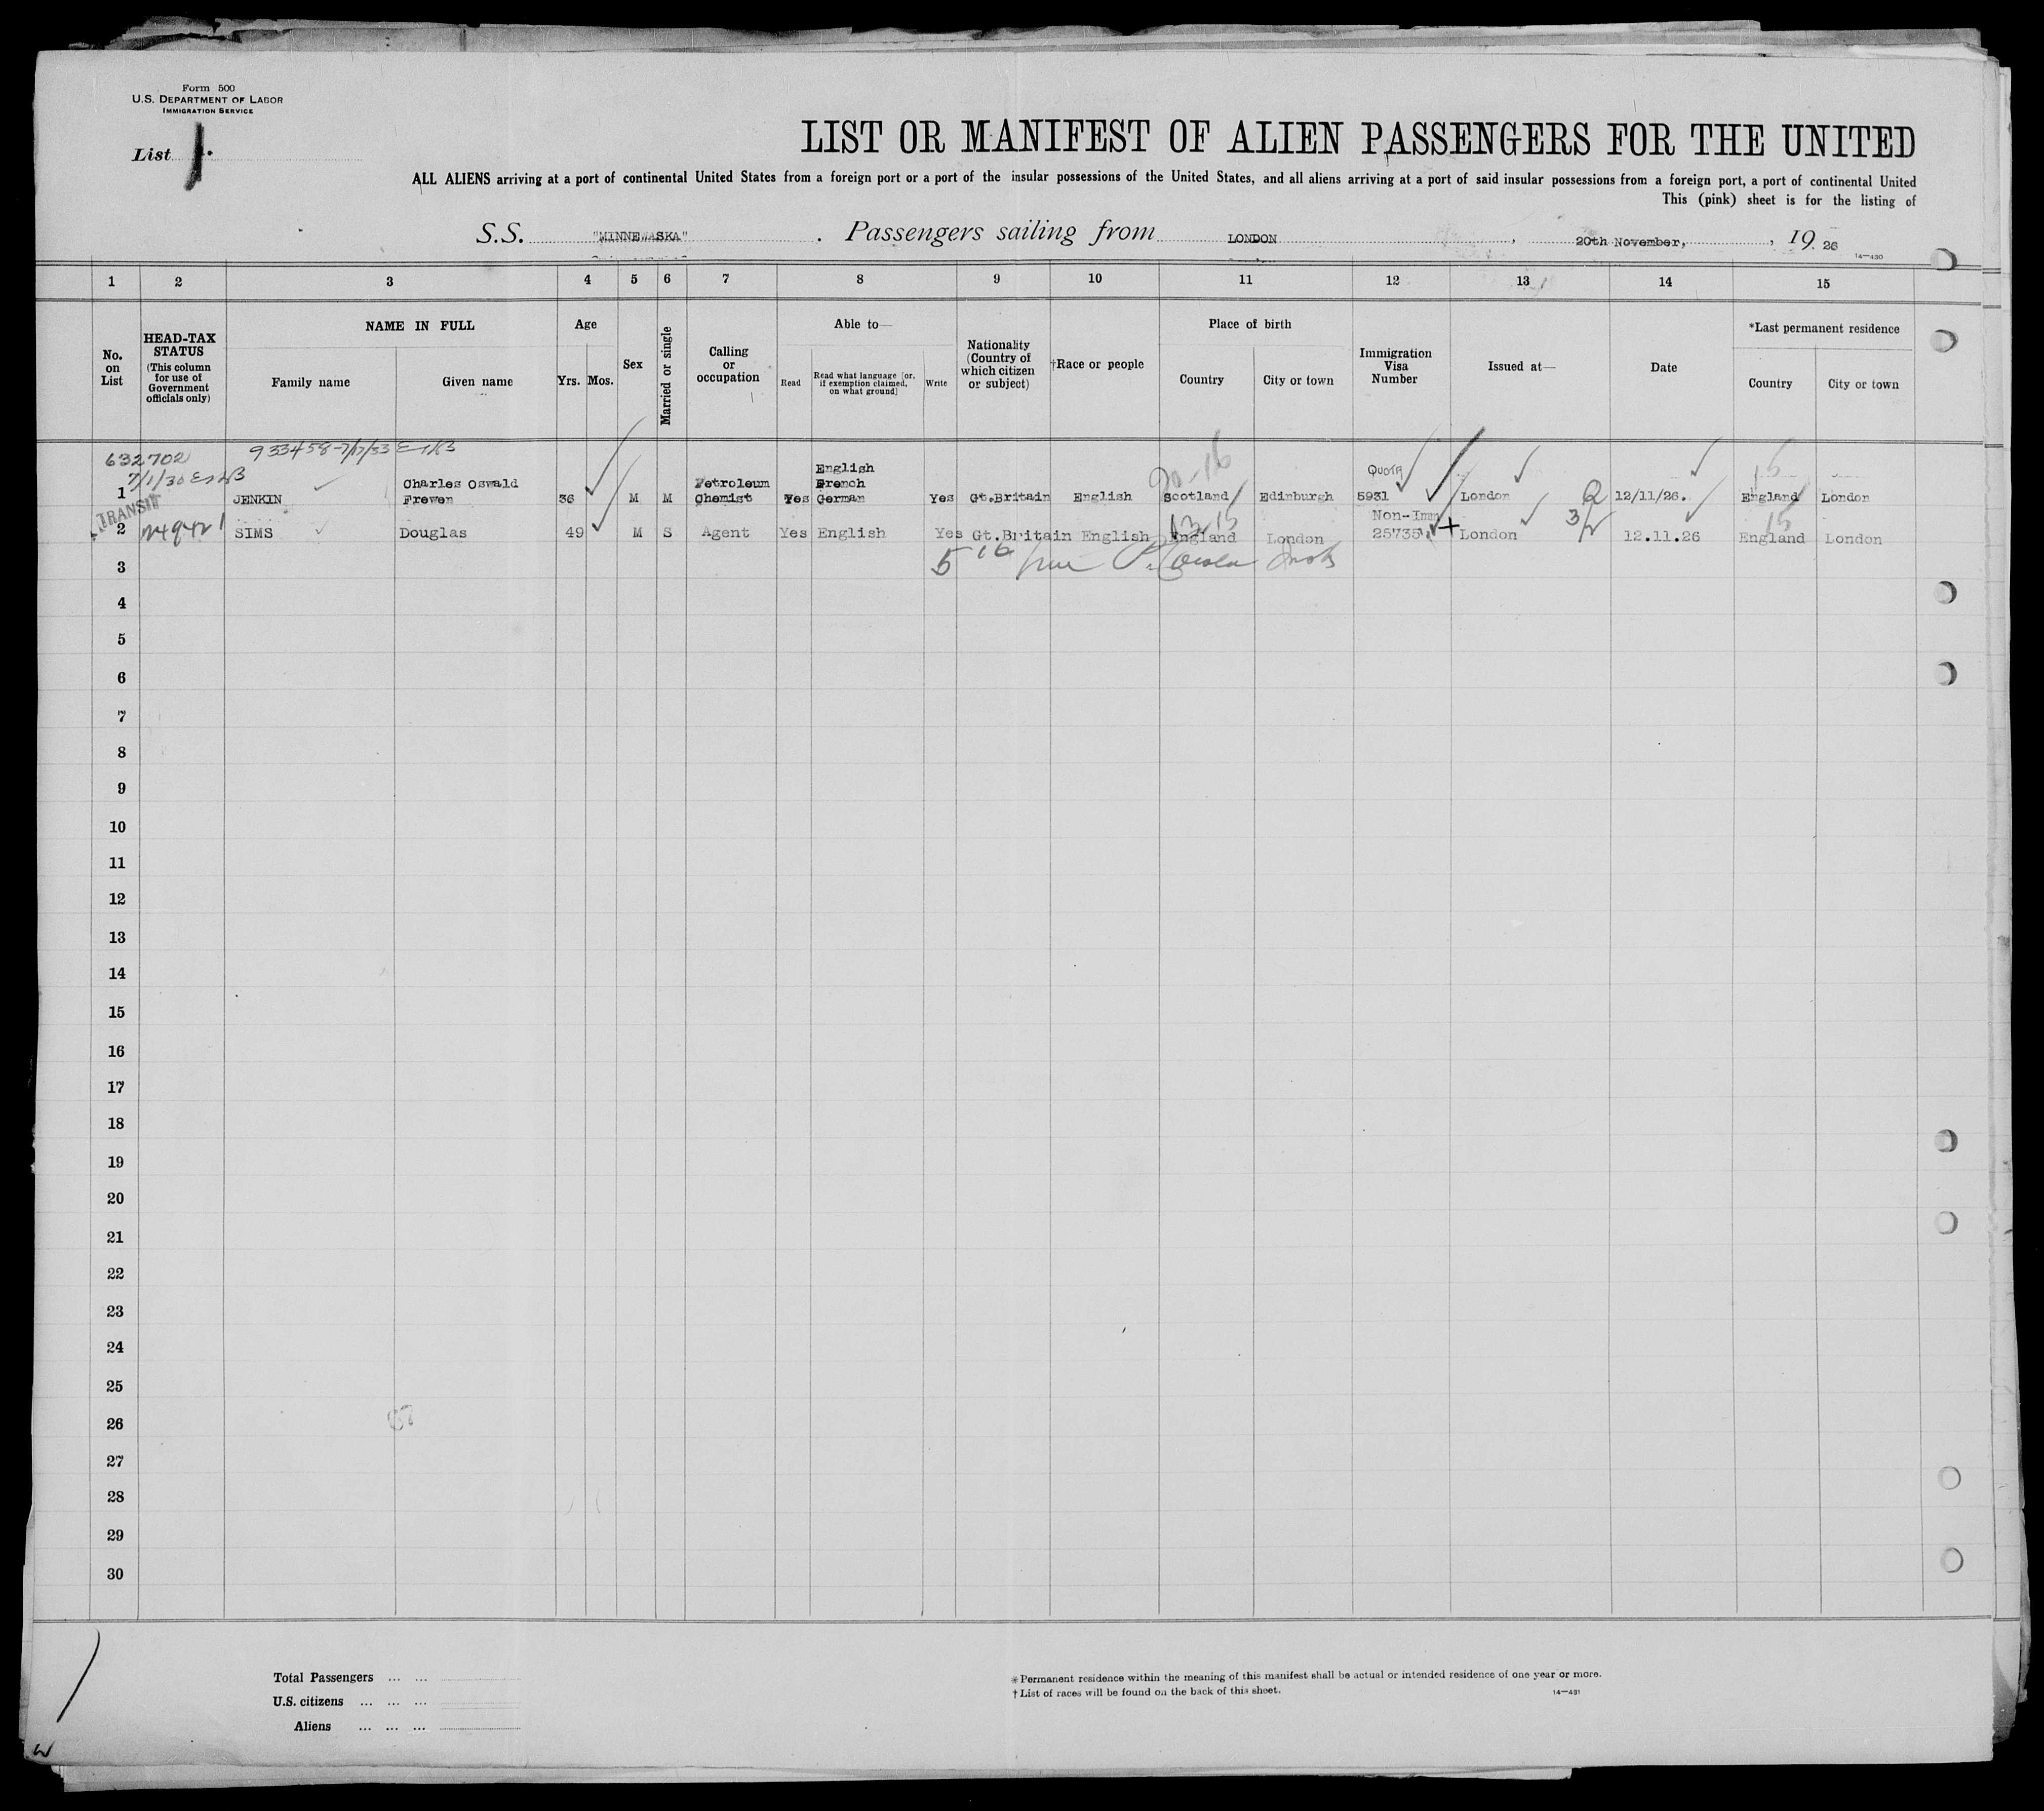 Form 500
U.S. DEPARTMENT OF LABOR
IMMIGRATION SERVICE
List 1.
LIST OR MANIFEST OF ALIEN PASSENGERS FOR THE UNITED
ALL ALIENS arriving at a port of continental United States from a foreign port or a port of the insular possessions of the United States, and all aliens arriving at a port of said insular possessions from a foreign port, a port of continental United
This (pink) sheet is for the listing of
S.S. "MINNEWASKA" . Passengers sailing from LONDON , 20th November, , 19 26
14—430
1 2 3 4 5 6 7 8 9 10 11 12 13 14 15
No. on List
HEAD-TAX STATUS
(This column for use of Government officials only)
NAME IN FULL
Family name
Given name
Age
Yrs. Mos.
Sex
Married or single
Calling or occupation
Able to—
Read
Read what language [or, if exemption claimed, on what ground]
Write
Nationality (Country of which citizen or subject)
†Race or people
Place of birth
Country
City or town
Immigration Visa Number
Issued at—
Date
*Last permanent residence
Country
City or town
632702
933458-7/17/33
7/1/30
20-16
QUOTA
15
1 JENKIN Charles Oswald Frewen 36 M M Petroleum Chemist Yes English French German Yes Gt.Britain English Scotland Edinburgh 5931 London Q 12/11/26. England London
TRANSIT
Non-Imm
15
2 SIMS Douglas 49 M S Agent Yes English Yes Gt.Britain English England London 25735 London 12.11.26 England London
3
4
5
6
7
8
9
10
11
12
13
14
15
16
17
18
19
20
21
22
23
24
25
26
27
28
29
30
Total Passengers ... ...
U.S. citizens ... ... ...
Aliens ... ... ...
*Permanent residence within the meaning of this manifest shall be actual or intended residence of one year or more.
†List of races will be found on the back of this sheet.
14—431